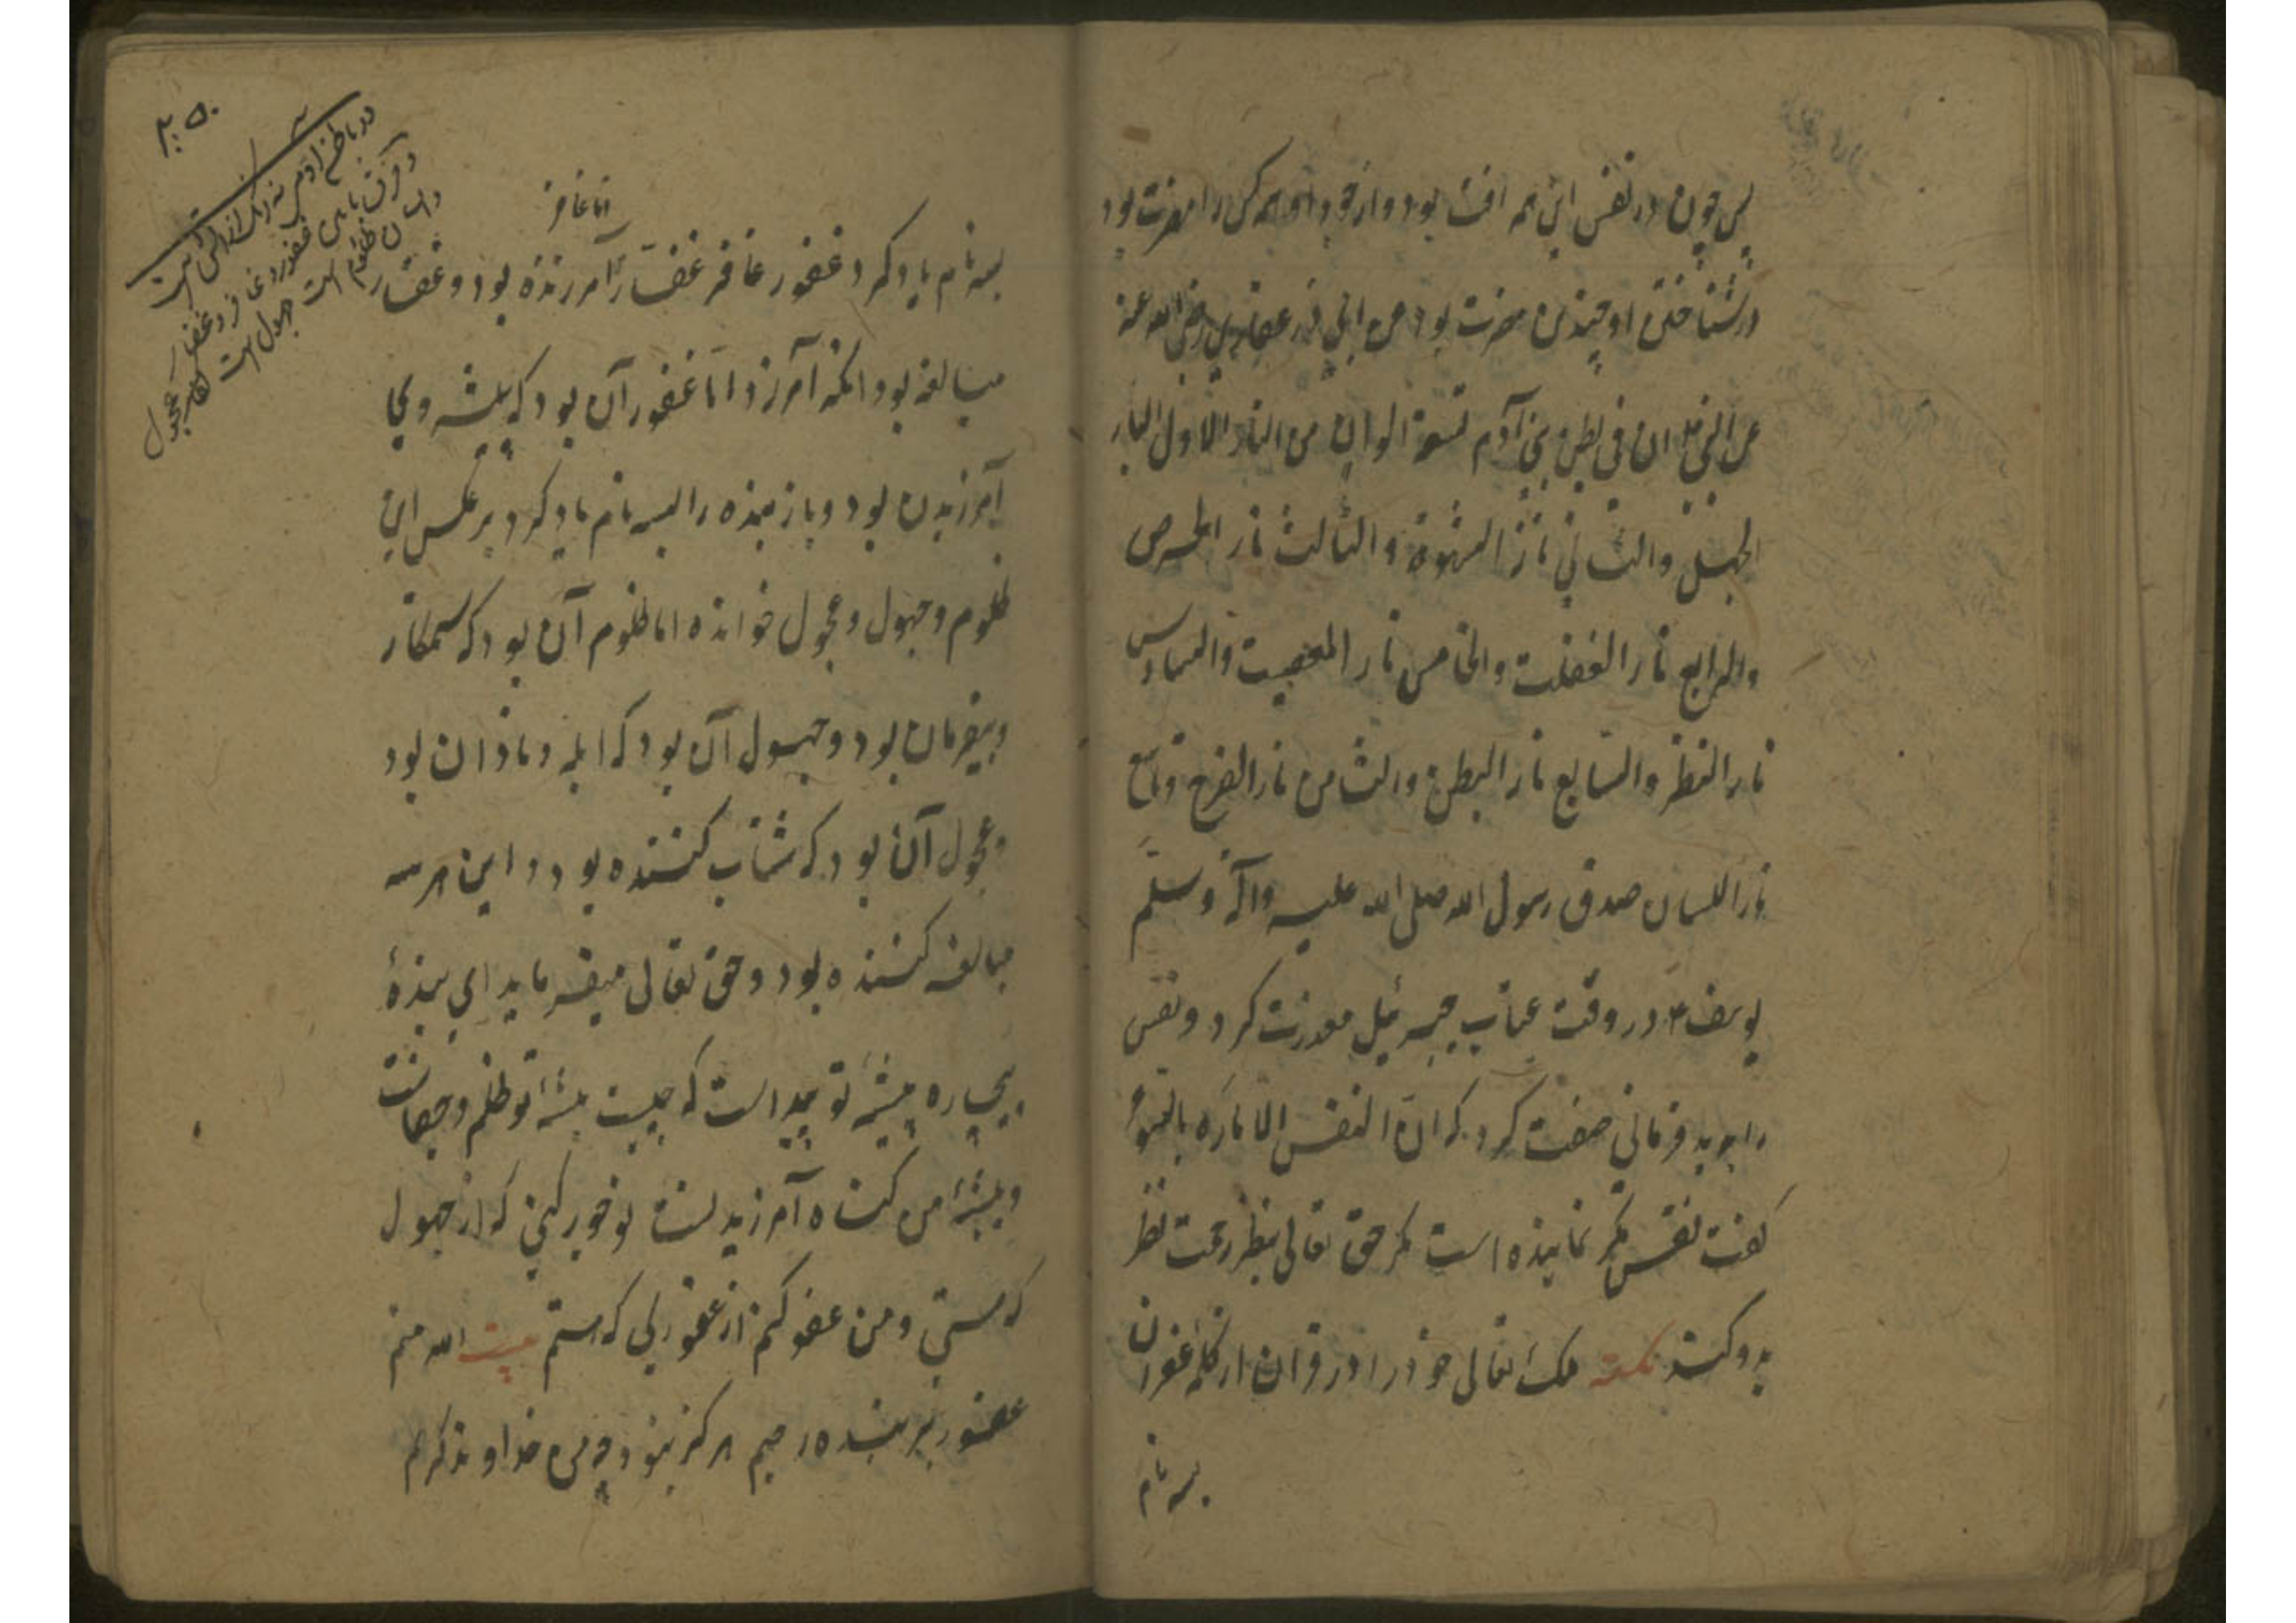 پس چون در نفس این همه افت بود و از خود او همه کس را مضرت بود
در شناختن او چندین مضرت بود عن ابی ذر غفاری رضی الله عنه
عن النبی ان فی بطن بنی آدم تسعة الوان من النار الاول النار
الجهل والثانی نار الشهوة والثالث نار الحرص
والرابع نار الغفلت والخامس نار المعصیت والسادس
نار النظر والسابع نار البطن والثامن نار الفرج و تاسع
نار اللسان صدق رسول الله صلی الله علیه وآله وسلم
یوسف در وقت عتاب جبرئیل معذرت کرد و نفس
را بربد فرمانی صفت کرد که ان النفس الامارة بالسوء
کفت نفس نماینده است مکر حق تعالی بنظر رحمت نظر
بدو کند نکته ملک تعالی خود را در قران از کلمه غفران
بسه نام
اما غافر
بسه نام یاد کرد غفور غافر غفار آمرزنده بود و غفار
مبالغه بود انکه آمرزد اما غفور آن بود که پیشه وی
آمرزیدن بود و باز بنده را بسه نام یاد کرد بر عکس این
ظلوم وجهول وعجول خوانده اما ظلوم آن بود که ستمکار
و بیفرمان بود وجهول آن بود که ابله و نادان بود
وعجول آن بود که شتاب کننده بود و این هر سه
مبالغه کننده بود و حق تعالی میفرماید ای بنده
بیچاره پیشه تو پیداست که چیست پیشه تو ظلم و جفاست
و پیشه من کناه آمرزیدنست تو خور کنی که از جهول
که هستی و من عفو کنم از غفوری که هستم بیت الله منم
غفور بر بنده رحیم هرکز نبود چو من خداوند کریم
۲۵۰
در باطن آدمی نه رنک از آتش است
و فرق میان غفور و غافر و غفار
و انسان ظلوم است جهول است عجول